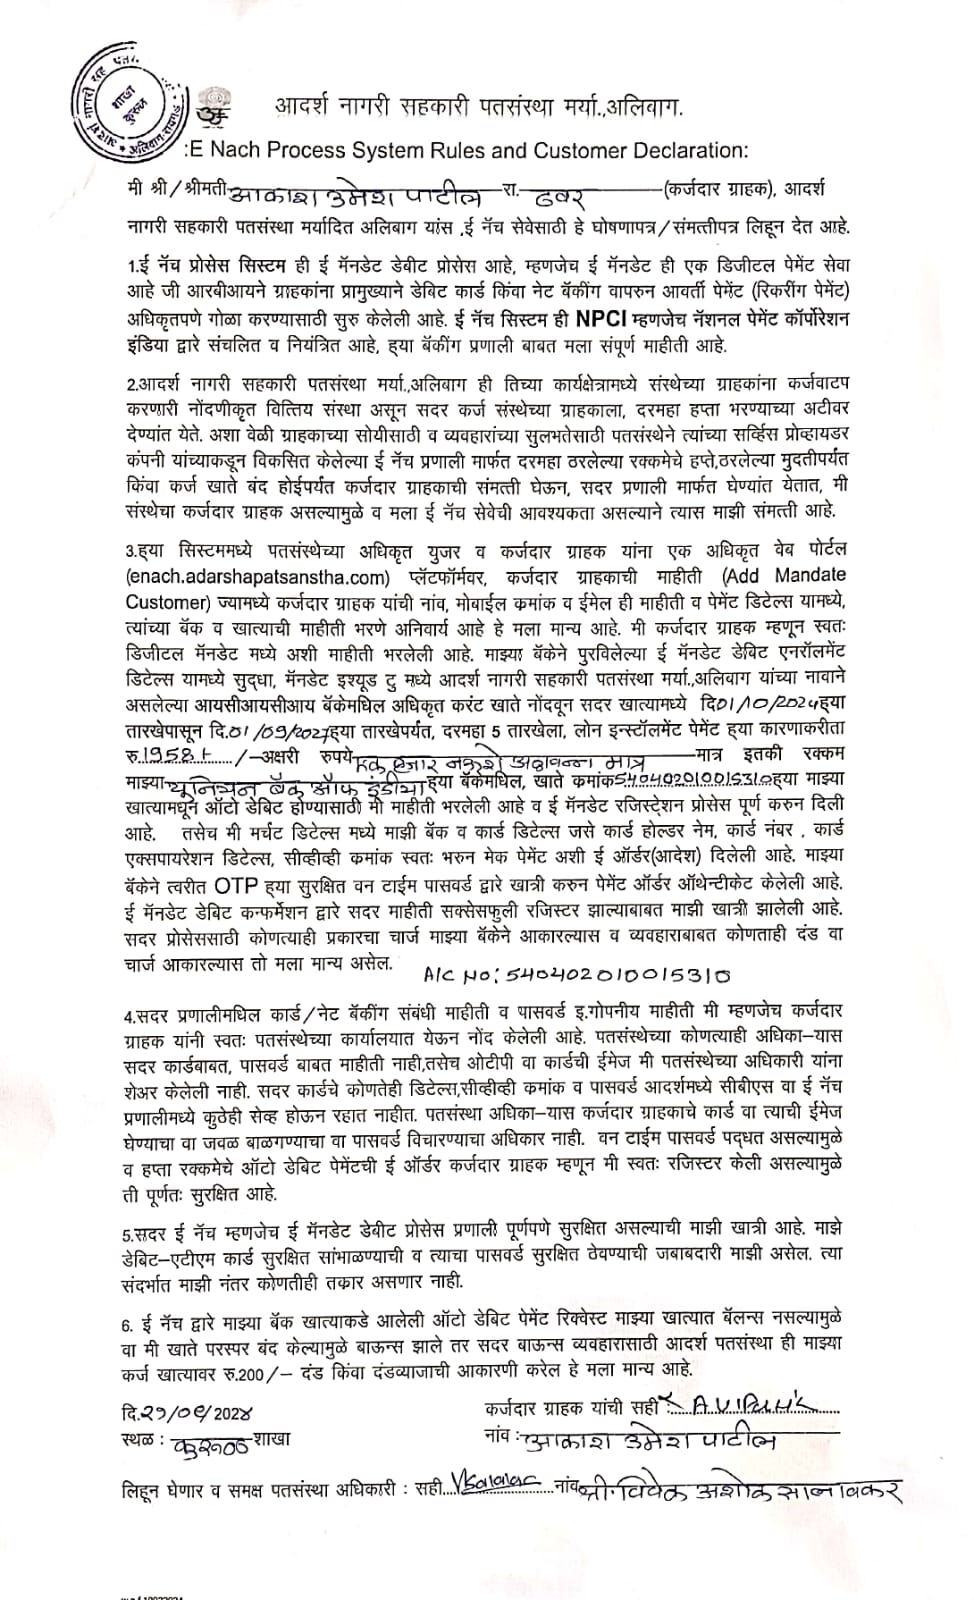 नागरी सह पतसं
शाखा
कुरुळ
अलिबाग-रायगड
आदर्श नागरी सहकारी पतसंस्था मर्या.,अलिबाग.
:E Nach Process System Rules and Customer Declaration:
मी श्री/श्रीमती आकाश उमेश पाटील रा. ढवर (कर्जदार ग्राहक), आदर्श
नागरी सहकारी पतसंस्था मर्यादित अलिबाग यांस ,ई नॅच सेवेसाठी हे घोषणापत्र/संमत्तीपत्र लिहून देत आहे.
1.ई नॅच प्रोसेस सिस्टम ही ई मॅनडेट डेबीट प्रोसेस आहे, म्हणजेच ई मॅनडेट ही एक डिजीटल पेमेंट सेवा
आहे जी आरबीआयने ग्राहकांना प्रामुख्याने डेबिट कार्ड किंवा नेट बॅकींग वापरुन आवर्ती पेमेंट (रिकरींग पेमेंट)
अधिकृतपणे गोळा करण्यासाठी सुरु केलेली आहे. ई नॅच सिस्टम ही NPCI म्हणजेच नॅशनल पेमेंट कॉर्पोरेशन
इंडिया द्वारे संचलित व नियंत्रित आहे, ह्या बॅकींग प्रणाली बाबत मला संपूर्ण माहीती आहे.
2.आदर्श नागरी सहकारी पतसंस्था मर्या.,अलिबाग ही तिच्या कार्यक्षेत्रामध्ये संस्थेच्या ग्राहकांना कर्जवाटप
करणारी नोंदणीकृत वित्तिय संस्था असून सदर कर्ज संस्थेच्या ग्राहकाला, दरमहा हप्ता भरण्याच्या अटीवर
देण्यांत येते. अशा वेळी ग्राहकाच्या सोयीसाठी व व्यवहारांच्या सुलभतेसाठी पतसंस्थेने त्यांच्या सर्व्हिस प्रोव्हायडर
कंपनी यांच्याकडून विकसित केलेल्या ई नॅच प्रणाली मार्फत दरमहा ठरलेल्या रक्कमेचे हप्ते,ठरलेल्या मुदतीपर्यंत
किंवा कर्ज खाते बंद होईपर्यंत कर्जदार ग्राहकाची संमत्ती घेऊन, सदर प्रणाली मार्फत घेण्यांत येतात, मी
संस्थेचा कर्जदार ग्राहक असल्यामुळे व मला ई नॅच सेवेची आवश्यकता असल्याने त्यास माझी संमत्ती आहे.
3.ह्या सिस्टममध्ये पतसंस्थेच्या अधिकृत युजर व कर्जदार ग्राहक यांना एक अधिकृत वेब पोर्टल
(enach.adarshapatsanstha.com) प्लॅटफॉर्मवर, कर्जदार ग्राहकाची माहीती (Add Mandate
Customer) ज्यामध्ये कर्जदार ग्राहक यांची नांव, मोबाईल कमांक व ईमेल ही माहीती व पेमेंट डिटेल्स यामध्ये,
त्यांच्या बॅक व खात्याची माहीती भरणे अनिवार्य आहे हे मला मान्य आहे. मी कर्जदार ग्राहक म्हणून स्वतः
डिजीटल मॅनडेट मध्ये अशी माहीती भरलेली आहे. माझ्या बॅकेने पुरविलेल्या ई मॅनडेट डेबिट एनरॉलमेंट
डिटेल्स यामध्ये सुद्धा, मॅनडेट इश्यूड टु मध्ये आदर्श नागरी सहकारी पतसंस्था मर्या.,अलिबाग यांच्या नावाने
असलेल्या आयसीआयसीआय बॅकेमधिल अधिकृत करंट खाते नोंदवून सदर खात्यामध्ये दि01/10/2024ह्या
तारखेपासून दि.01/09/2027ह्या तारखेपर्यंत, दरमहा 5 तारखेला, लोन इन्स्टॉलमेंट पेमेंट ह्या कारणाकरीता
रु.1958/- /-अक्षरी रुपये एक हजार नऊशे अठ्ठावन्न मात्र मात्र इतकी रक्कम
माझ्या युनियन बॅंक ऑफ इंडिया ह्या बॅकेमधिल, खाते कमांक540402010015310ह्या माझ्या
खात्यामधून ऑटो डेबिट होण्यासाठी मी माहीती भरलेली आहे व ई मॅनडेट रजिस्टे्शन प्रोसेस पूर्ण करुन दिली
आहे. तसेच मी मर्चंट डिटेल्स मध्ये माझी बॅक व कार्ड डिटेल्स जसे कार्ड होल्डर नेम, कार्ड नंबर , कार्ड
एक्सपायरेशन डिटेल्स, सीव्हीव्ही कमांक स्वतः भरुन मेक पेमेंट अशी ई ऑर्डर(आदेश) दिलेली आहे. माझ्या
बॅकेने त्वरीत OTP ह्या सुरक्षित वन टाईम पासवर्ड द्वारे खात्री करुन पेमेंट ऑर्डर ऑथेन्टीकेट केलेली आहे.
ई मॅनडेट डेबिट कन्फर्मेशन द्वारे सदर माहीती सक्सेसफुली रजिस्टर झाल्याबाबत माझी खात्री झालेली आहे.
सदर प्रोसेससाठी कोणत्याही प्रकारचा चार्ज माझ्या बॅकेने आकारल्यास व व्यवहाराबाबत कोणताही दंड वा
चार्ज आकारल्यास तो मला मान्य असेल.
A/C No: 540402010015310
4.सदर प्रणालीमधिल कार्ड/नेट बॅकींग संबंधी माहीती व पासवर्ड इ.गोपनीय माहीती मी म्हणजेच कर्जदार
ग्राहक यांनी स्वतः पतसंस्थेच्या कार्यालयात येऊन नोंद केलेली आहे. पतसंस्थेच्या कोणत्याही अधिका–यास
सदर कार्डबाबत, पासवर्ड बाबत माहीती नाही,तसेच ओटीपी वा कार्डची ईमेज मी पतसंस्थेच्या अधिकारी यांना
शेअर केलेली नाही. सदर कार्डचे कोणतेही डिटेल्स,सीव्हीव्ही कमांक व पासवर्ड आदर्शमध्ये सीबीएस वा ई नॅच
प्रणालीमध्ये कुठेही सेव्ह होऊन रहात नाहीत. पतसंस्था अधिका–यास कर्जदार ग्राहकाचे कार्ड वा त्याची ईमेज
घेण्याचा वा जवळ बाळगण्याचा वा पासवर्ड विचारण्याचा अधिकार नाही. वन टाईम पासवर्ड पद्धत असल्यामुळे
व हप्ता रक्कमेचे ऑटो डेबिट पेमेंटची ई ऑर्डर कर्जदार ग्राहक म्हणून मी स्वतः रजिस्टर केली असल्यामुळे
ती पूर्णतः सुरक्षित आहे.
5.सदर ई नॅच म्हणजेच ई मॅनडेट डेबीट प्रोसेस प्रणाली पूर्णपणे सुरक्षित असल्याची माझी खात्री आहे. माझे
डेबिट–एटीएम कार्ड सुरक्षित सांभाळण्याची व त्याचा पासवर्ड सुरक्षित ठेवण्याची जबाबदारी माझी असेल. त्या
संदर्भात माझी नंतर कोणतीही तकार असणार नाही.
6. ई नॅच द्वारे माझ्या बॅक खात्याकडे आलेली ऑटो डेबिट पेमेंट रिक्वेस्ट माझ्या खात्यात बॅलन्स नसल्यामुळे
वा मी खाते परस्पर बंद केल्यामुळे बाऊन्स झाले तर सदर बाऊन्स व्यवहारासाठी आदर्श पतसंस्था ही माझ्या
कर्ज खात्यावर रु.200/– दंड किंवा दंडव्याजाची आकारणी करेल हे मला मान्य आहे.
दि.21/09/2024 कर्जदार ग्राहक यांची सही :
स्थळ : कुरुळ शाखा नांव :- आकाश उमेश पाटील
लिहून घेणार व समक्ष पतसंस्था अधिकारी : सही नांव श्री. विवेक अशोक सानावकर